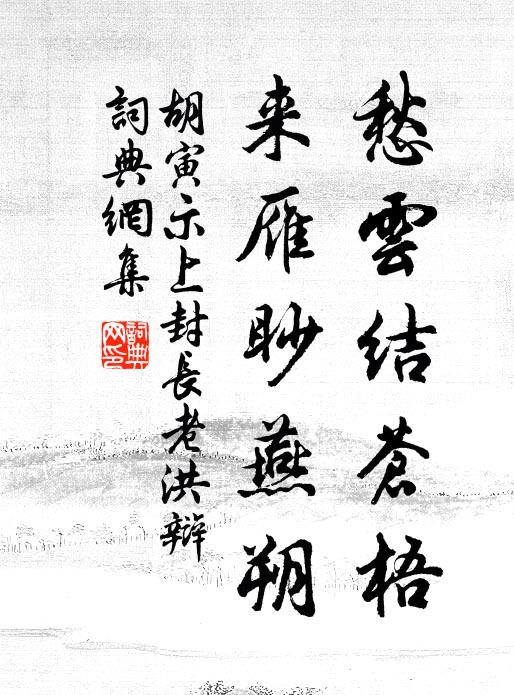 愁雲結蒼梧
来雁眇燕朔
胡寅示上封長老洪辯
詞典網集
詞典
网印